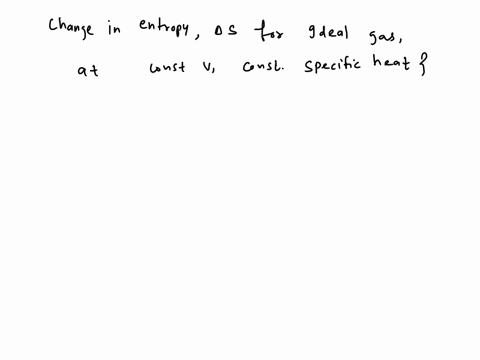 Change in entropy, ΔS for ideal gas,
at const V, const. specific heat }